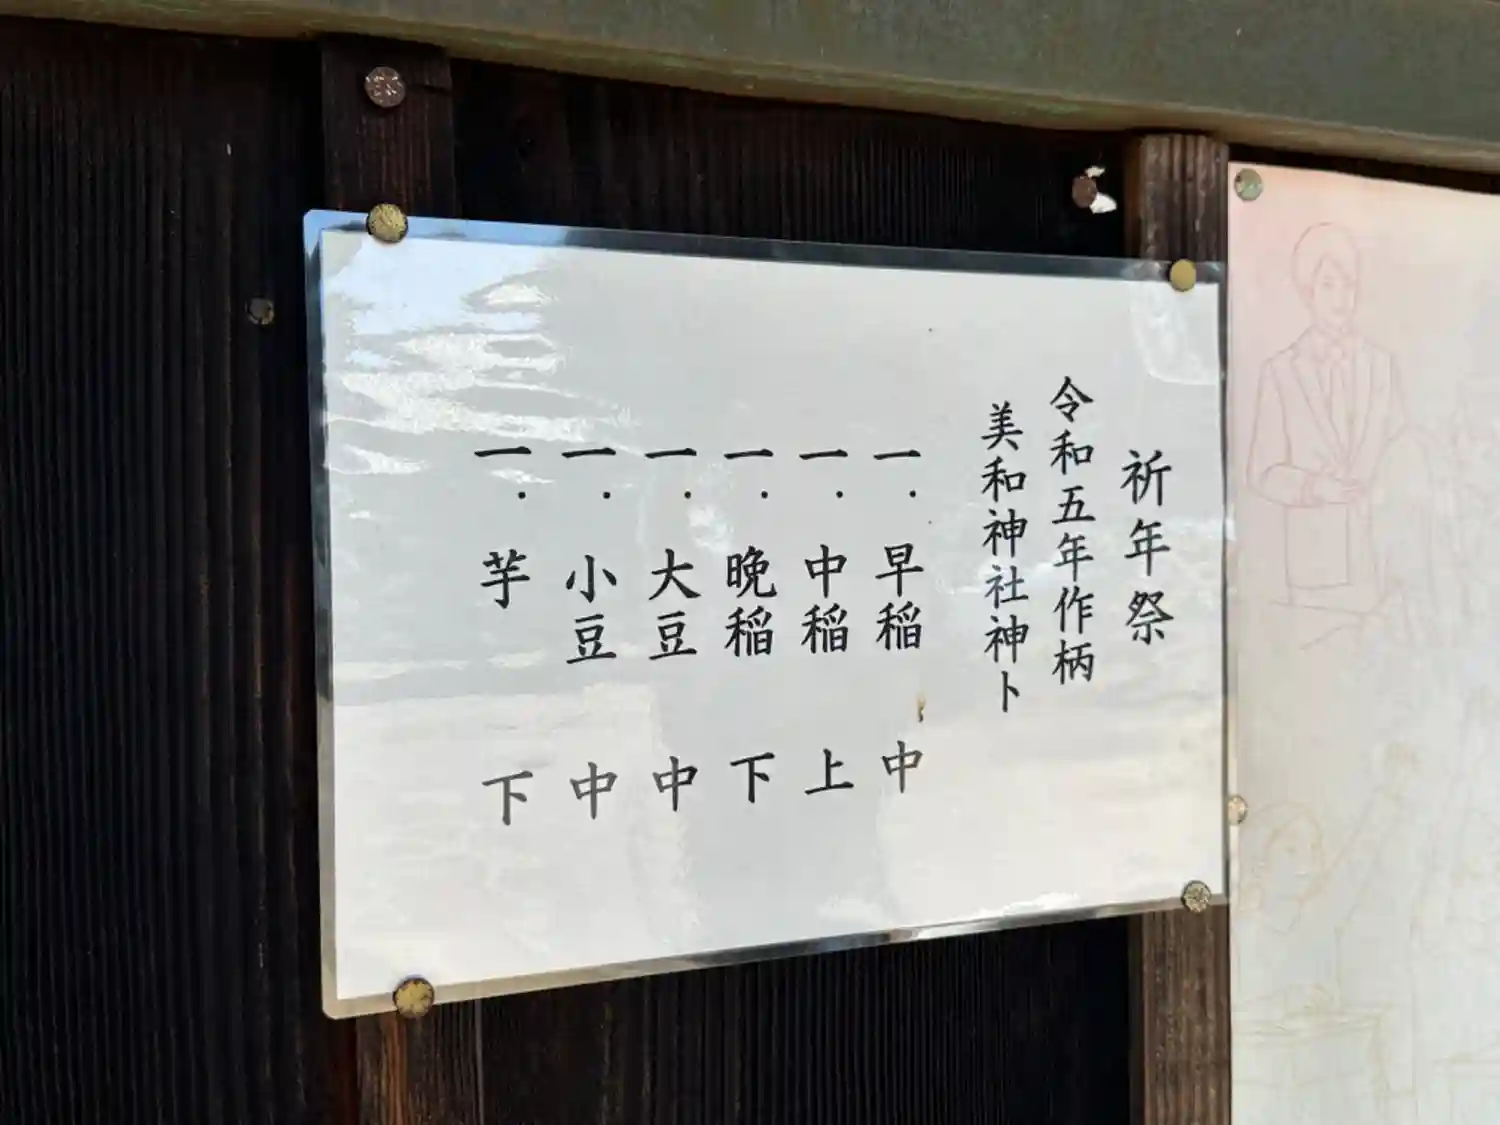 祈年祭
令和五年作柄
美和神社神卜
一．早稲　中
一．中稲　上
一．晩稲　下
一．大豆　中
一．小豆　中
一．芋　下